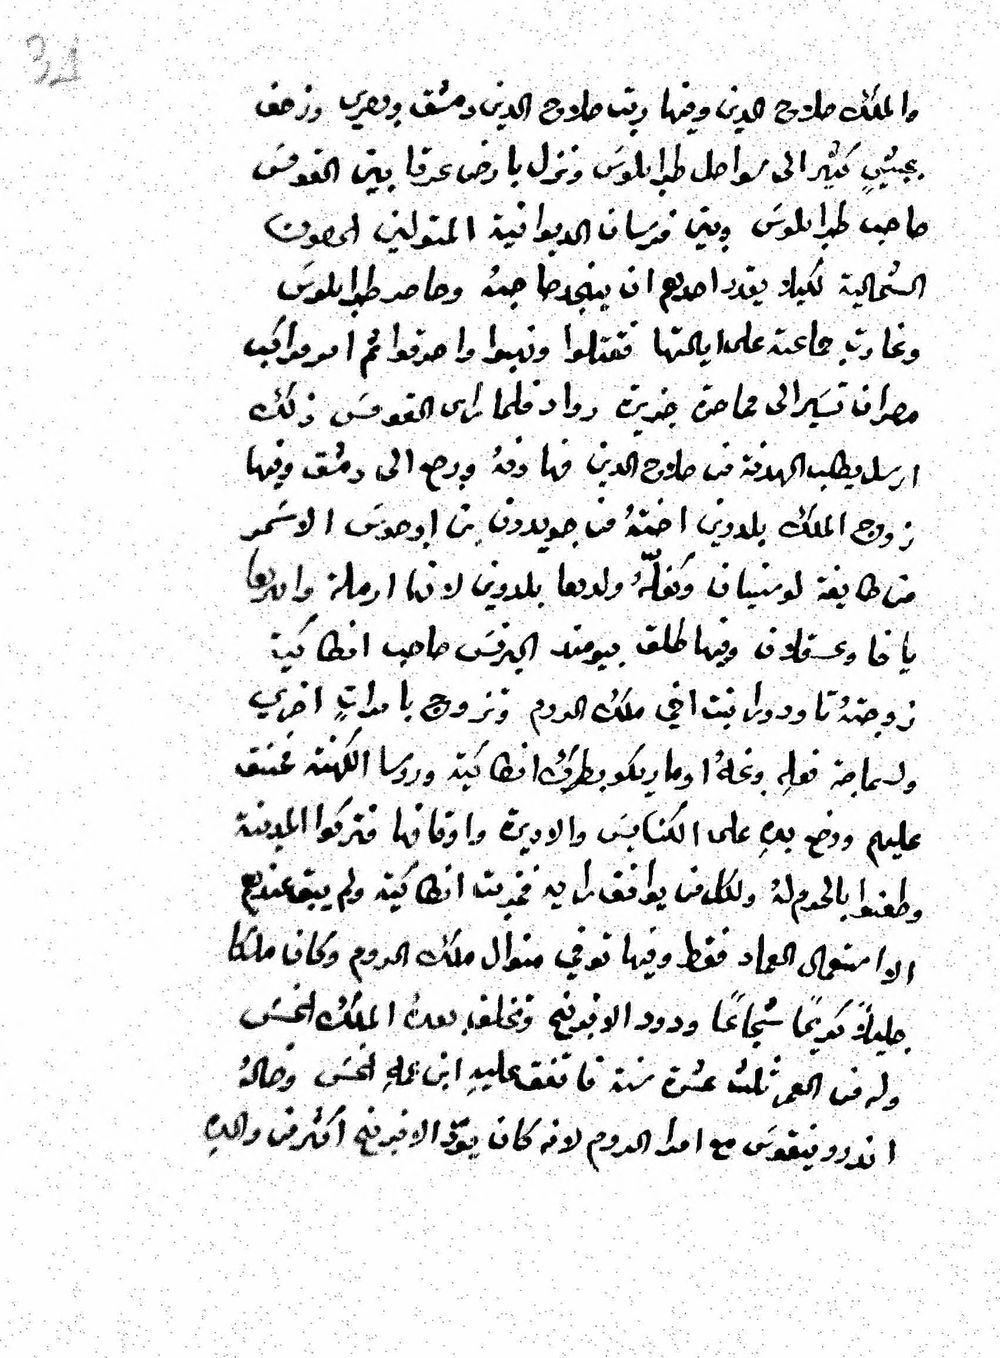 31
والملك صلاح الدين وفيها رتب صلاح الدين دمشق وبصرى وزحف
بجيشٍ كثير الى سواحل طرابلوس ونزل بارض عرقا بين القومس
صاحب طرابلوس وبين فرسان الديوانية المتولين الحصون
الشمالية لكيلا يقدر احدهم ان ينجد صاحبهُ وحاصر طرابلوس
وغارت جماعته على ايالتها فقتلوا ونهبوا واحرقوا ثم امر مراكب
مصر ان تسير الى محاصرة جزيرة رواد فلما راى القومس ذلك
ارسل يطلب الهدنة من صلاح الدين فهادنهُ ورجع الى دمشق وفيها
زوج الملك بلدوين اختهُ من جويدون بن اوجوس الاسمر
من طايفة لوسنيان وكفلّهُ ولدها بلدوين لانها ارملة واقطعها
يافا وعسقلان وفيها طلق بيومند البرنس صاحب انطاكية
زوجتهُ تاودورا بنت اخي ملك الروم وتزوج بامراةٍ اخرى
ولسماجة فعلهِ وبخهُ اوماريكو بطرك انطاكية وروسا الكهنة فحنق
عليهم ووضع يدهِ على الكنايس والاديرة واوقافها فتركوا المدينة
وطعنوا بالحرم لهُ ولكل من يوافق رايه فخربت انطاكية ولم يبق عندهم
الا استعمال العماد فقط وفيها توفي منوال ملك الروم وكان ملكا
جليلاً كريمًا شجاعًا ودود الافرنج وتخلف بعدهُ الملك الكس
وله من العمر ثلث عشرة سنة فاتفق عليهِ ابن عمهِ الكس وخالهُ
اندرونيقوس مع امرا الروم لانه كان يودّ الافرنج اكثر من والدهِ